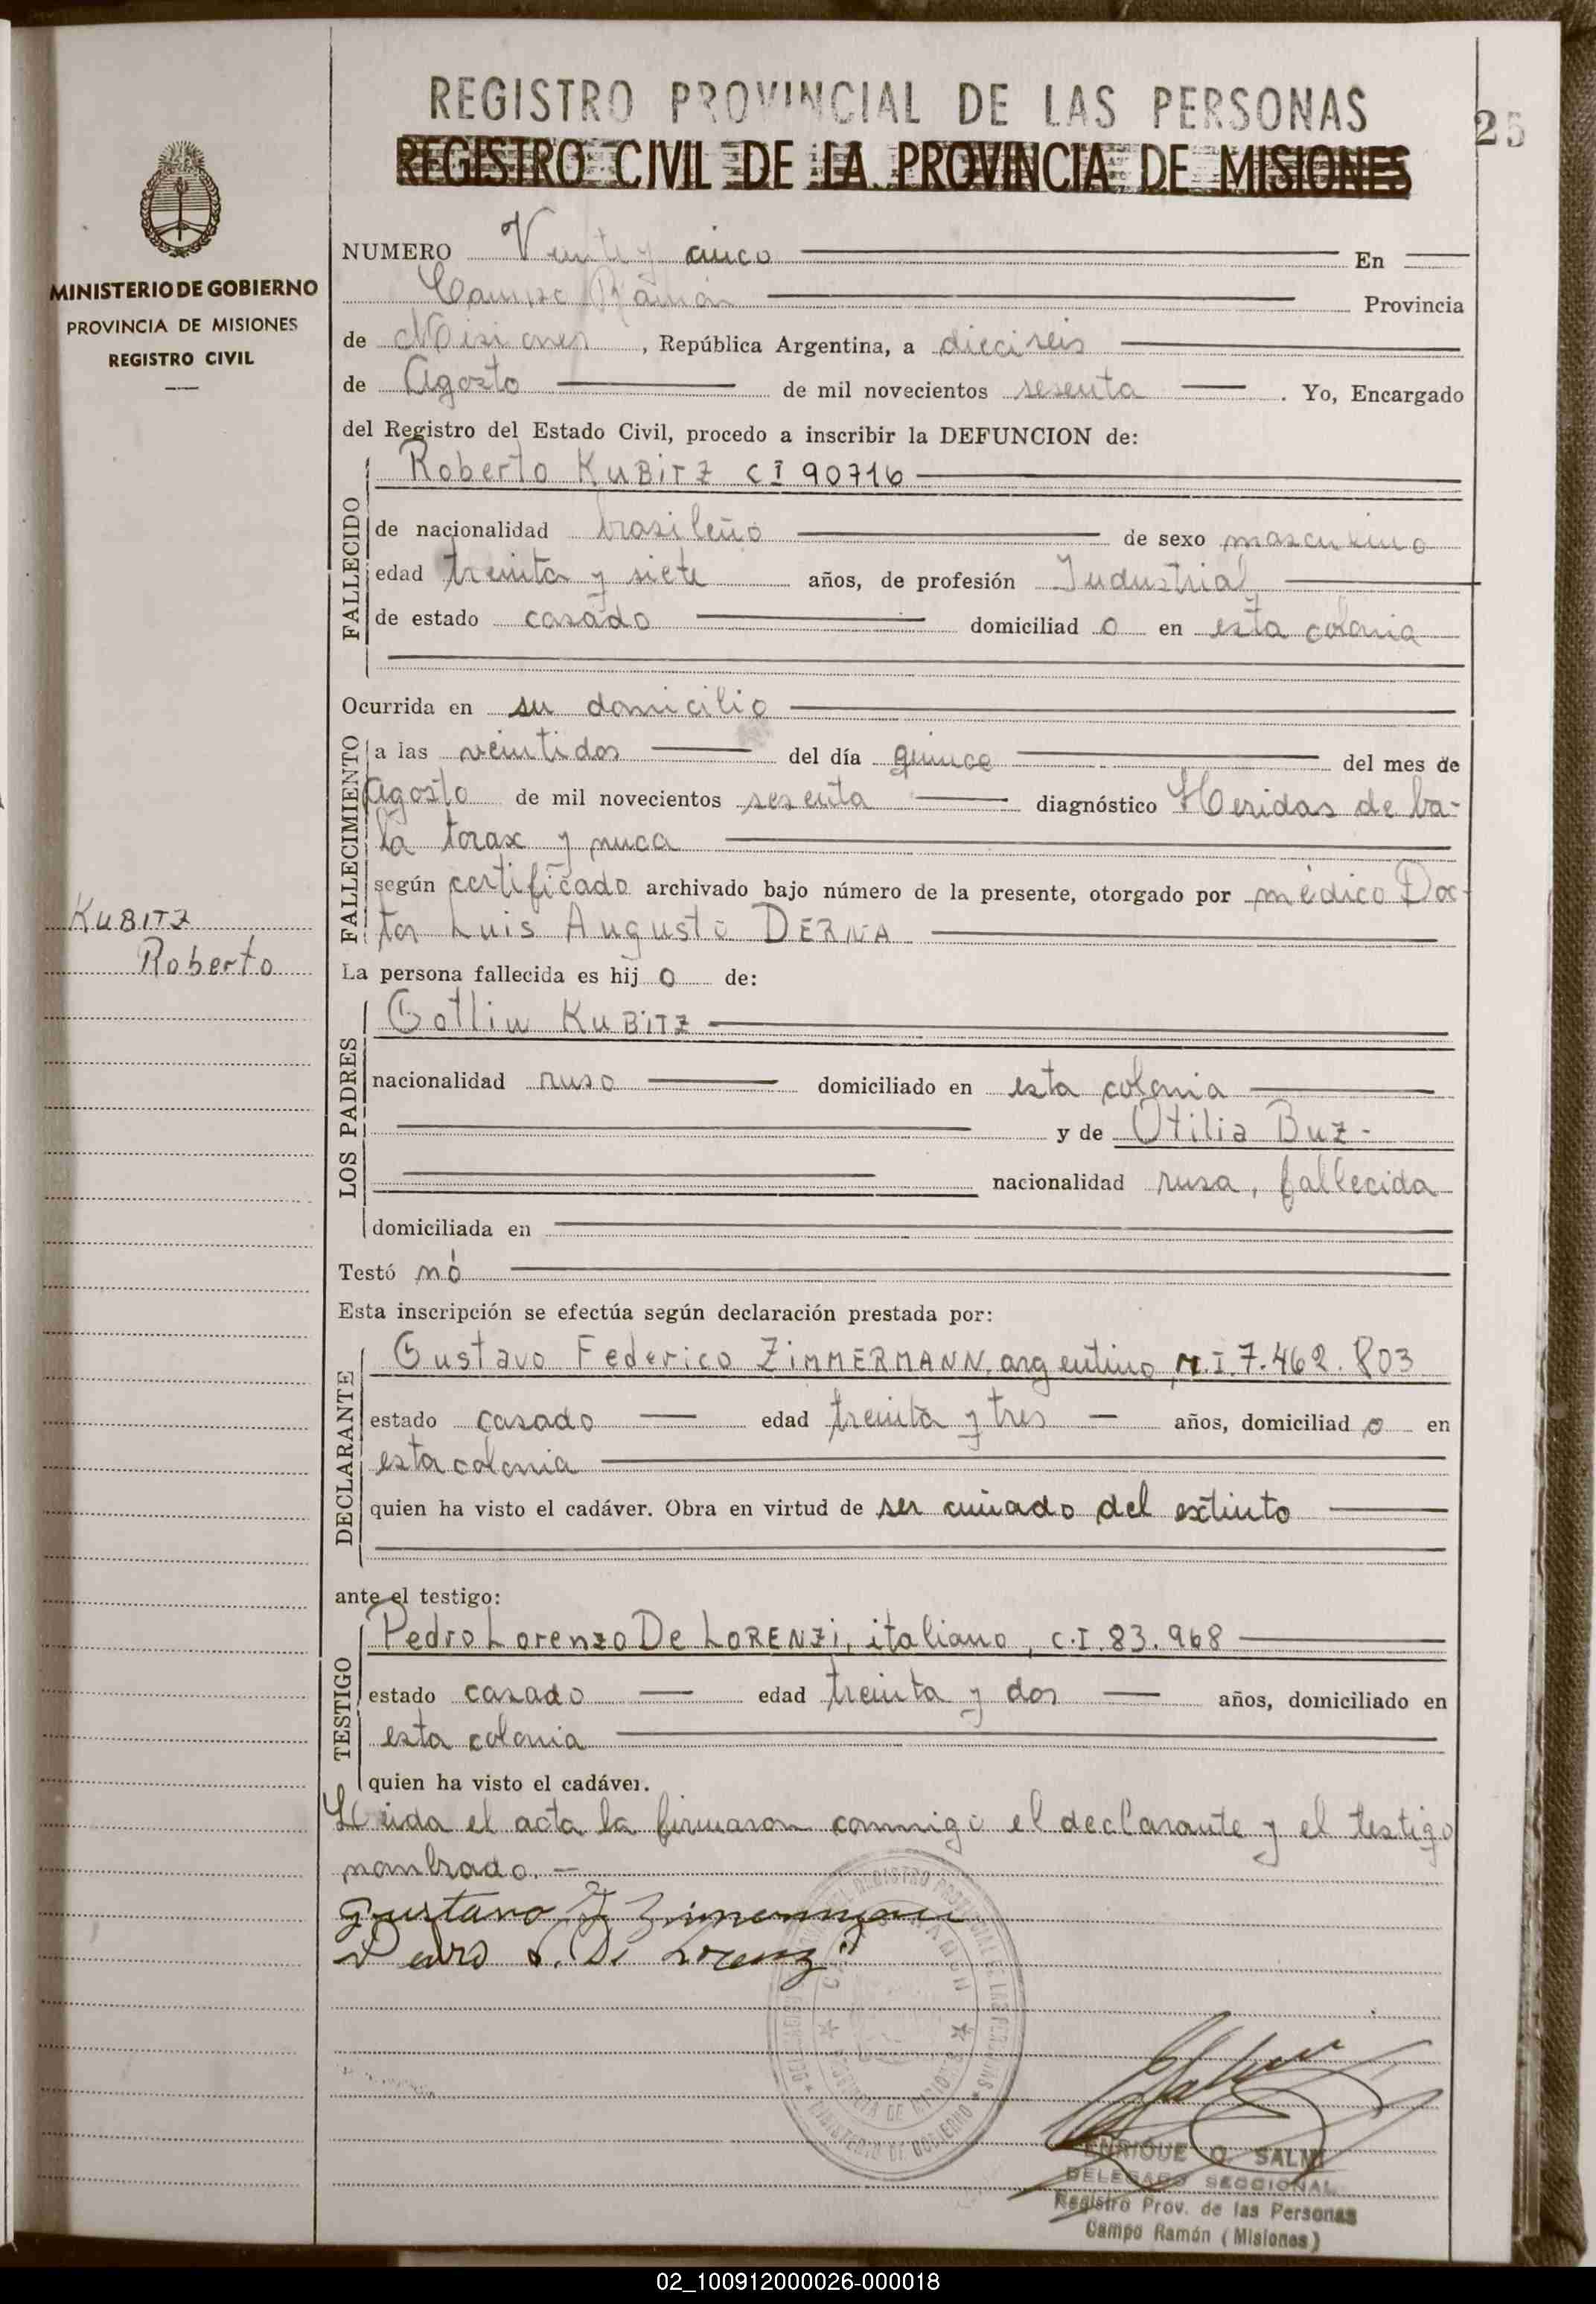 REGISTRO PROVINCIAL DE LAS PERSONAS
25
REGISTRO CIVIL DE LA PROVINCIA DE MISIONES
MINISTERIO DE GOBIERNO
PROVINCIA DE MISIONES
REGISTRO CIVIL
NUMERO Veinte y cinco En
Campo Ramón Provincia
de Misiones, República Argentina, a dieciseis
de Agosto de mil novecientos sesenta. Yo, Encargado
del Registro del Estado Civil, procedo a inscribir la DEFUNCION de:
FALLECIDO
Roberto KUBITZ CI 90716
de nacionalidad brasileño de sexo masculino
edad treinta y siete años, de profesión Industrial
de estado casado domiciliad o en esta colonia
Ocurrida en su domicilio
FALLECIMIENTO
a las veintidos del día quince del mes de
Agosto de mil novecientos sesenta diagnóstico Heridas de ba-
la torax y nuca
según certificado archivado bajo número de la presente, otorgado por médico Doc-
tor Luis Augusto DERNA
KUBITZ
Roberto
La persona fallecida es hij o de:
LOS PADRES
Gotlin KUBITZ
nacionalidad ruso domiciliado en esta colonia
y de Otilia Buz.-
nacionalidad rusa, fallecida
domiciliada en
Testó nó
Esta inscripción se efectúa según declaración prestada por:
DECLARANTE
Gustavo Federico ZIMMERMANN, argentino, M.I. 7.462.803
estado casado edad treinta y tres años, domiciliad o en
esta colonia
quien ha visto el cadáver. Obra en virtud de ser cuñado del extinto
ante el testigo:
TESTIGO
Pedro Lorenzo De LORENZi, italiano, C.I. 83.968
estado casado edad treinta y dos años, domiciliado en
esta colonia
quien ha visto el cadáver.
Leida el acta la firmaron conmigo el declarante y el testigo
nombrado.-
Gustavo F Zimmermann
Pedro L. De Lorenzi
ENRIQUE O. SALMI
DELEGADO SECCIONAL
Registro Prov. de las Personas
Campo Ramón (Misiones)
02_100912000026-000018